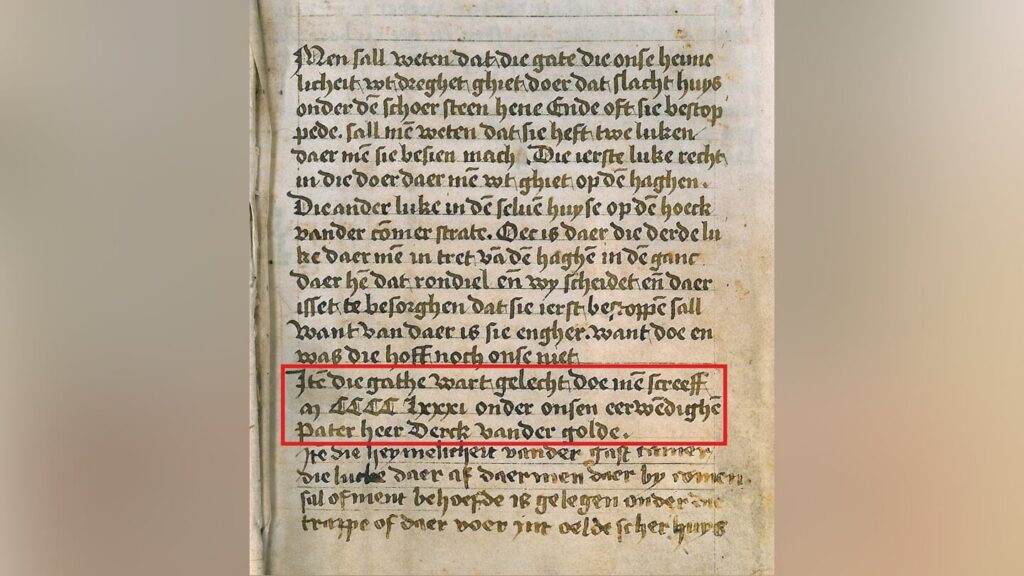 Men sall weten dat die gate die onse heime
licheit wt dreghet ghiet doer dat slacht huys
onder dē schoer steen hene Ende oft sie bestop
pede. sall mē weten dat sie heft twe luken
daer mē sie besien mach. Die ierste luke recht
in die doer daer mē wt ghiet op dē haghen.
Die ander luke in dē seluē huyse op dē hoeck
vander cōmer strate. Oec is daer die derde lu
ke daer mē in tret vā dē haghē in dē ganc
daer hē dat rondiel eñ wy scheidet eñ daer
isset te besorghen dat sie ierst bestoppē sall
want van daer is sie engher. want doe en
was die hoff noch onse niet
Itē die gathe wart gelecht doe mē screeff
M CCCC lxxxi onder onsen eerwēdighē
pater heer Derck vander golde.
Itē die heymelicheit vander gast camer
die lucke daer af daermen daer by comen
sal ofment behoefde is gelegen onder die
trappe of daer voer int oelde scher huys